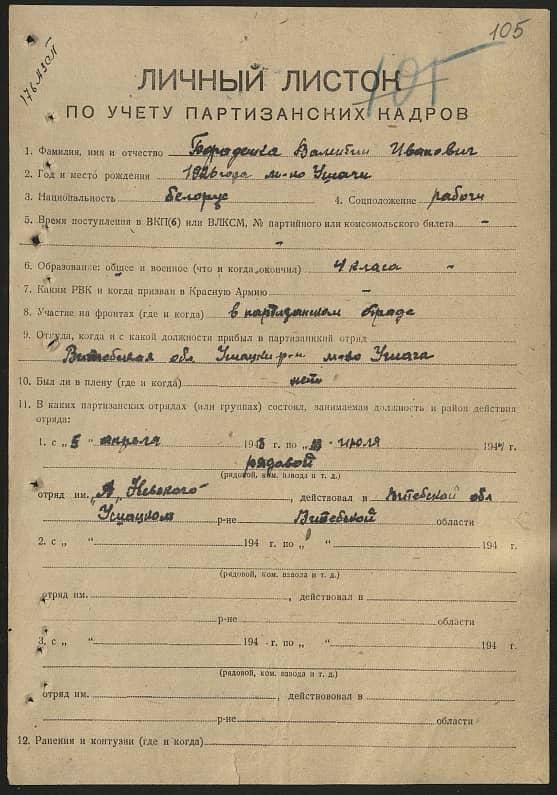 105
105
ЛИЧНЫЙ ЛИСТОК
ПО УЧЕТУ ПАРТИЗАНСКИХ КАДРОВ
1. Фамилия, имя и отчество Валентин Иванович
2. Год и место рождения 1926 года м-ко Ушачи
3. Национальность белорус 4. Соцположение рабочи
5. Время поступления в ВКП(б) или ВЛКСМ, № партийного или комсомольского билета -
"
6. Образование: общее и военное (что и когда окончил) 4 класа -
7. Каким РВК и когда призван в Красную Армию -
8. Участие на фронтах (где и когда) в партизанском отраде
9. Откуда, когда и с какой должности прибыл в партизанкий отряд
обл Ушацки р-н м-во Ушача
10. Был ли в плену (где и когда) нет
11. В каких партизанских отрядах (или группах) состоял, занимаемая должность и район действия
отряда:
1. с „ 5 “ апреля 1943 г. по „ “ июля 1944 г.
рядовой
(рядовой, ком. взвода и т. д.)
отряд им. „А„ Невского , действовал в Витебской обл
Ушацком р-не Витебской области
2. с „ “ 194 г. по „ “ 194 г.
(рядовой, ком. взвода и т. д.)
отряд им. , действовал в
р-не области
3. с „ “ 194 г. по „ “ 194 г.
(рядовой, ком. взвода и т. д.)
отряд им. , действововал в
р-не области
12. Ранения и контузии (где и когда)